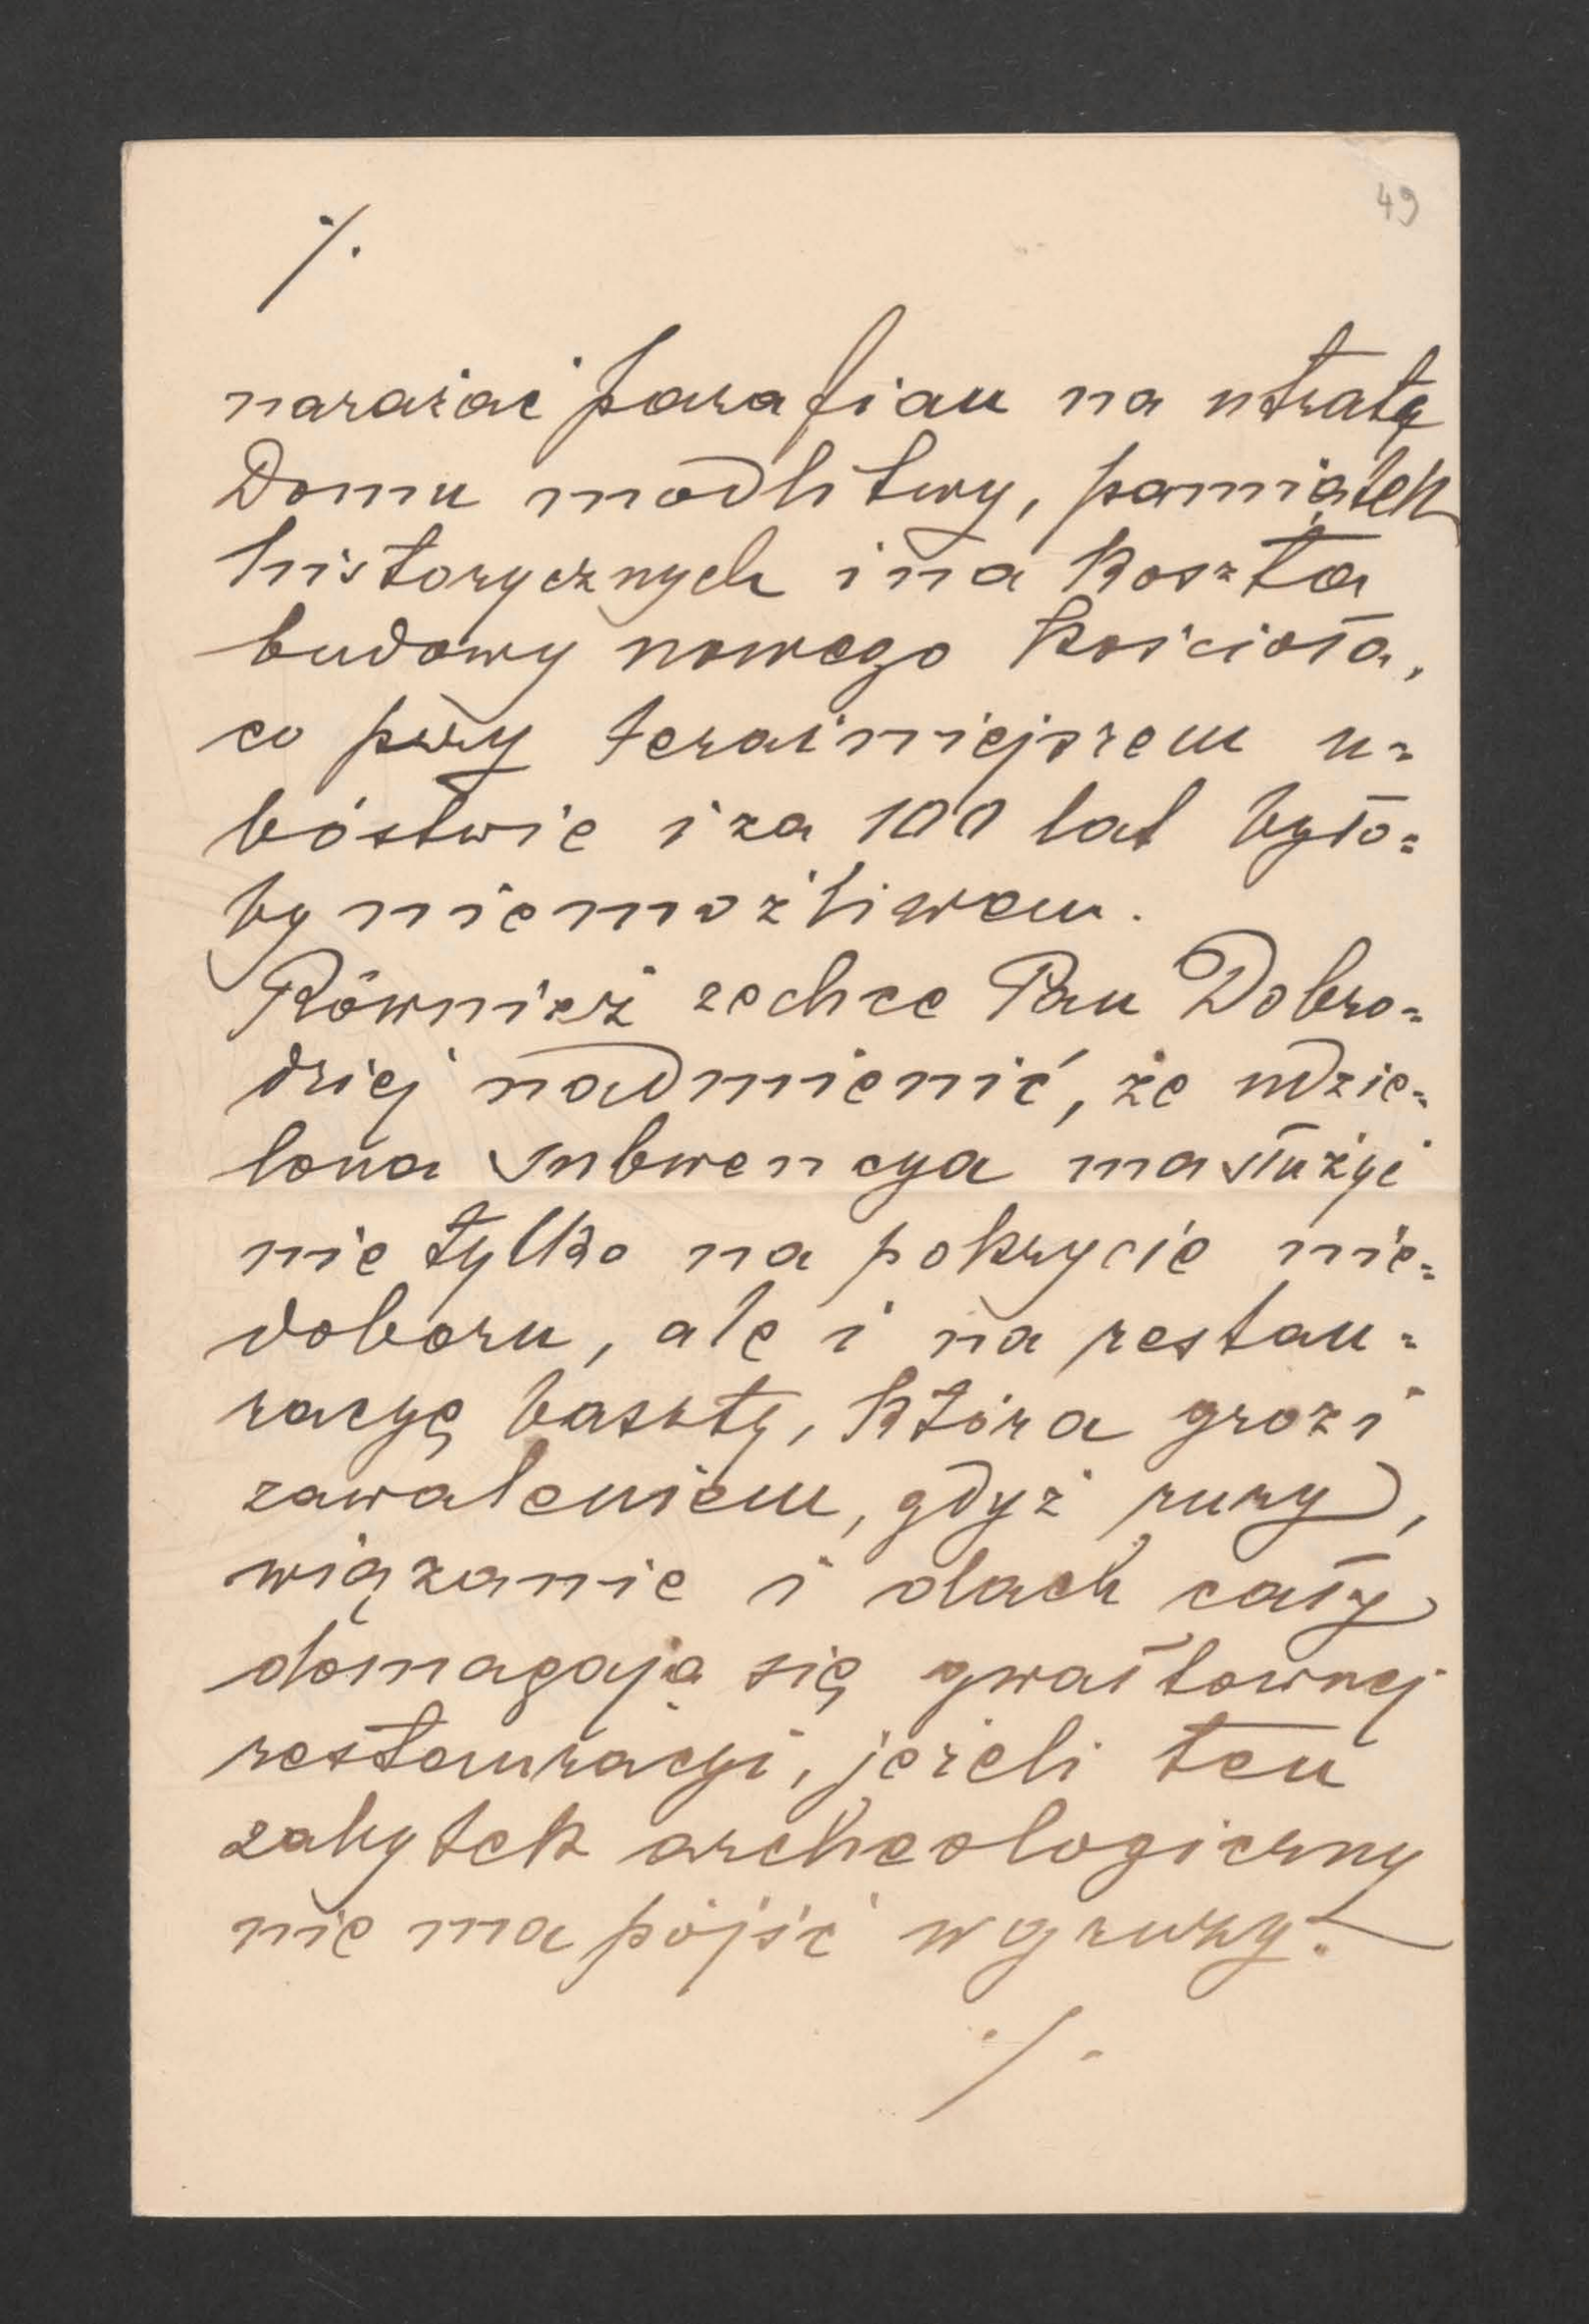 49
./.
narażać parafian na utratę
Domu modlitwy, pamiątek
historycznych i na koszta
budowy nowego kościoła,
co przy teraźniejszem u=
bóstwie i za 100 lat było=
by niemożliwem.
Również zechce Pan Dobro=
dziej nadmienić, że udzie=
lona subwencya ma służyć
nie tylko na pokrycie nie=
doboru, ale i na restau=
racyę baszty, która grozi
zawaleniem, gdyż mury,
wiązanie i dach cały
domagają się gwałtownej
restauracyi, jeżeli ten
zabytek archeologiczny
nie ma pójść w gruzy.
./.